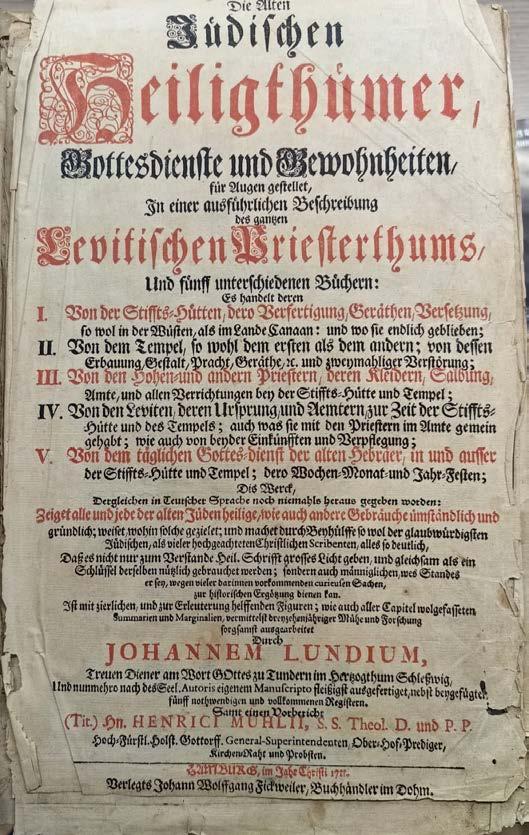 Die Alten
Jüdischen
Heiligthümer,
Gottesdienste und Gewohnheiten,
für Augen gestellet,
In einer ausführlichen Beschreibung
des gantzen
Levitischen Priesterthums,
Und fünff unterschiedenen Büchern:
Es handelt deren
I. Von der Stiffts-Hütten, dero Verfertigung, Geräthen, Versetzung,
so wol in der Wüsten, als im Lande Canaan: und wo sie endlich geblieben;
II. Von dem Tempel, so wohl dem ersten als dem andern; von dessen
Erbauung, Gestalt, Pracht, Geräthe, ꝛc. und zweymahliger Verstörung;
III. Von den Hohen- und andern Priestern, deren Kleidern, Salbung,
Amte, und allen Verrichtungen bey der Stiffts-Hütte und Tempel;
IV. Von den Leviten, deren Ursprung, und Aemtern, zur Zeit der Stiffts-
Hütte und des Tempels; auch was sie mit den Priestern im Amte gemein
gehabt; wie auch von beyder Einkünfften und Verpflegung;
V. Von dem täglichen Gottes-dienst der alten Hebräer, in und ausser
der Stiffts-Hütte und Tempel; dero Wochen-Monat-und Jahr-Festen;
Dis Werck,
Dergleichen in Teutscher Sprache noch niemahls heraus gegeben worden:
Zeiget alle und jede der alten Jüden heilige, wie auch andere Gebräuche ümständlich und
gründlich; weiset, wohin solche gezielet; und machet durch Beyhülffe so wol der glaubwürdigsten
Jüdischen, als vieler hochgeachteten Christlichen Scribenten, alles so deutlich,
Daß es nicht nur zum Verstande Heil. Schrifft grosses Licht geben, und gleichsam als ein
Schlüssel derselben nützlich gebrauchet werden; sondern auch männiglichen, wes Standes
er sey, wegen vieler darinnen vorkommenden curieusen Sachen,
zur historischen Ergötzung dienen kan.
Ist mit zierlichen, und zur Erleuterung helffenden Figuren; wie auch aller Capitel wolgefasseten
Summarien und Marginalien, vermittelst dreyzehenjähriger Mühe und Forschung
sorgsamst ausgearbeitet
Durch
JOHANNEM LUNDIUM,
Treuen Diener am Wort GOttes zu Tundern im Hertzogthum Schleßwig,
Und nunmehro nach des Seel. Autoris eigenem Manuscripto fleißigst ausgefertiget, nebst beygefügten
fünff nothwendigen und vollkommenen Registern.
Samt einen Vorbericht
(Tit.) Hn. HENRICI MUHLII, S.S. Theol. D. und P.P.
Hoch-Fürstl. Holst. Gottorff. General-Superintendenten, Ober-Hof-Prediger,
Kirchen-Raht und Probsten.
HAMBURG, im Jahr Christi 1711.
Verlegts Johann Wolffgang Fickweiler, Buchhändler im Dohm.